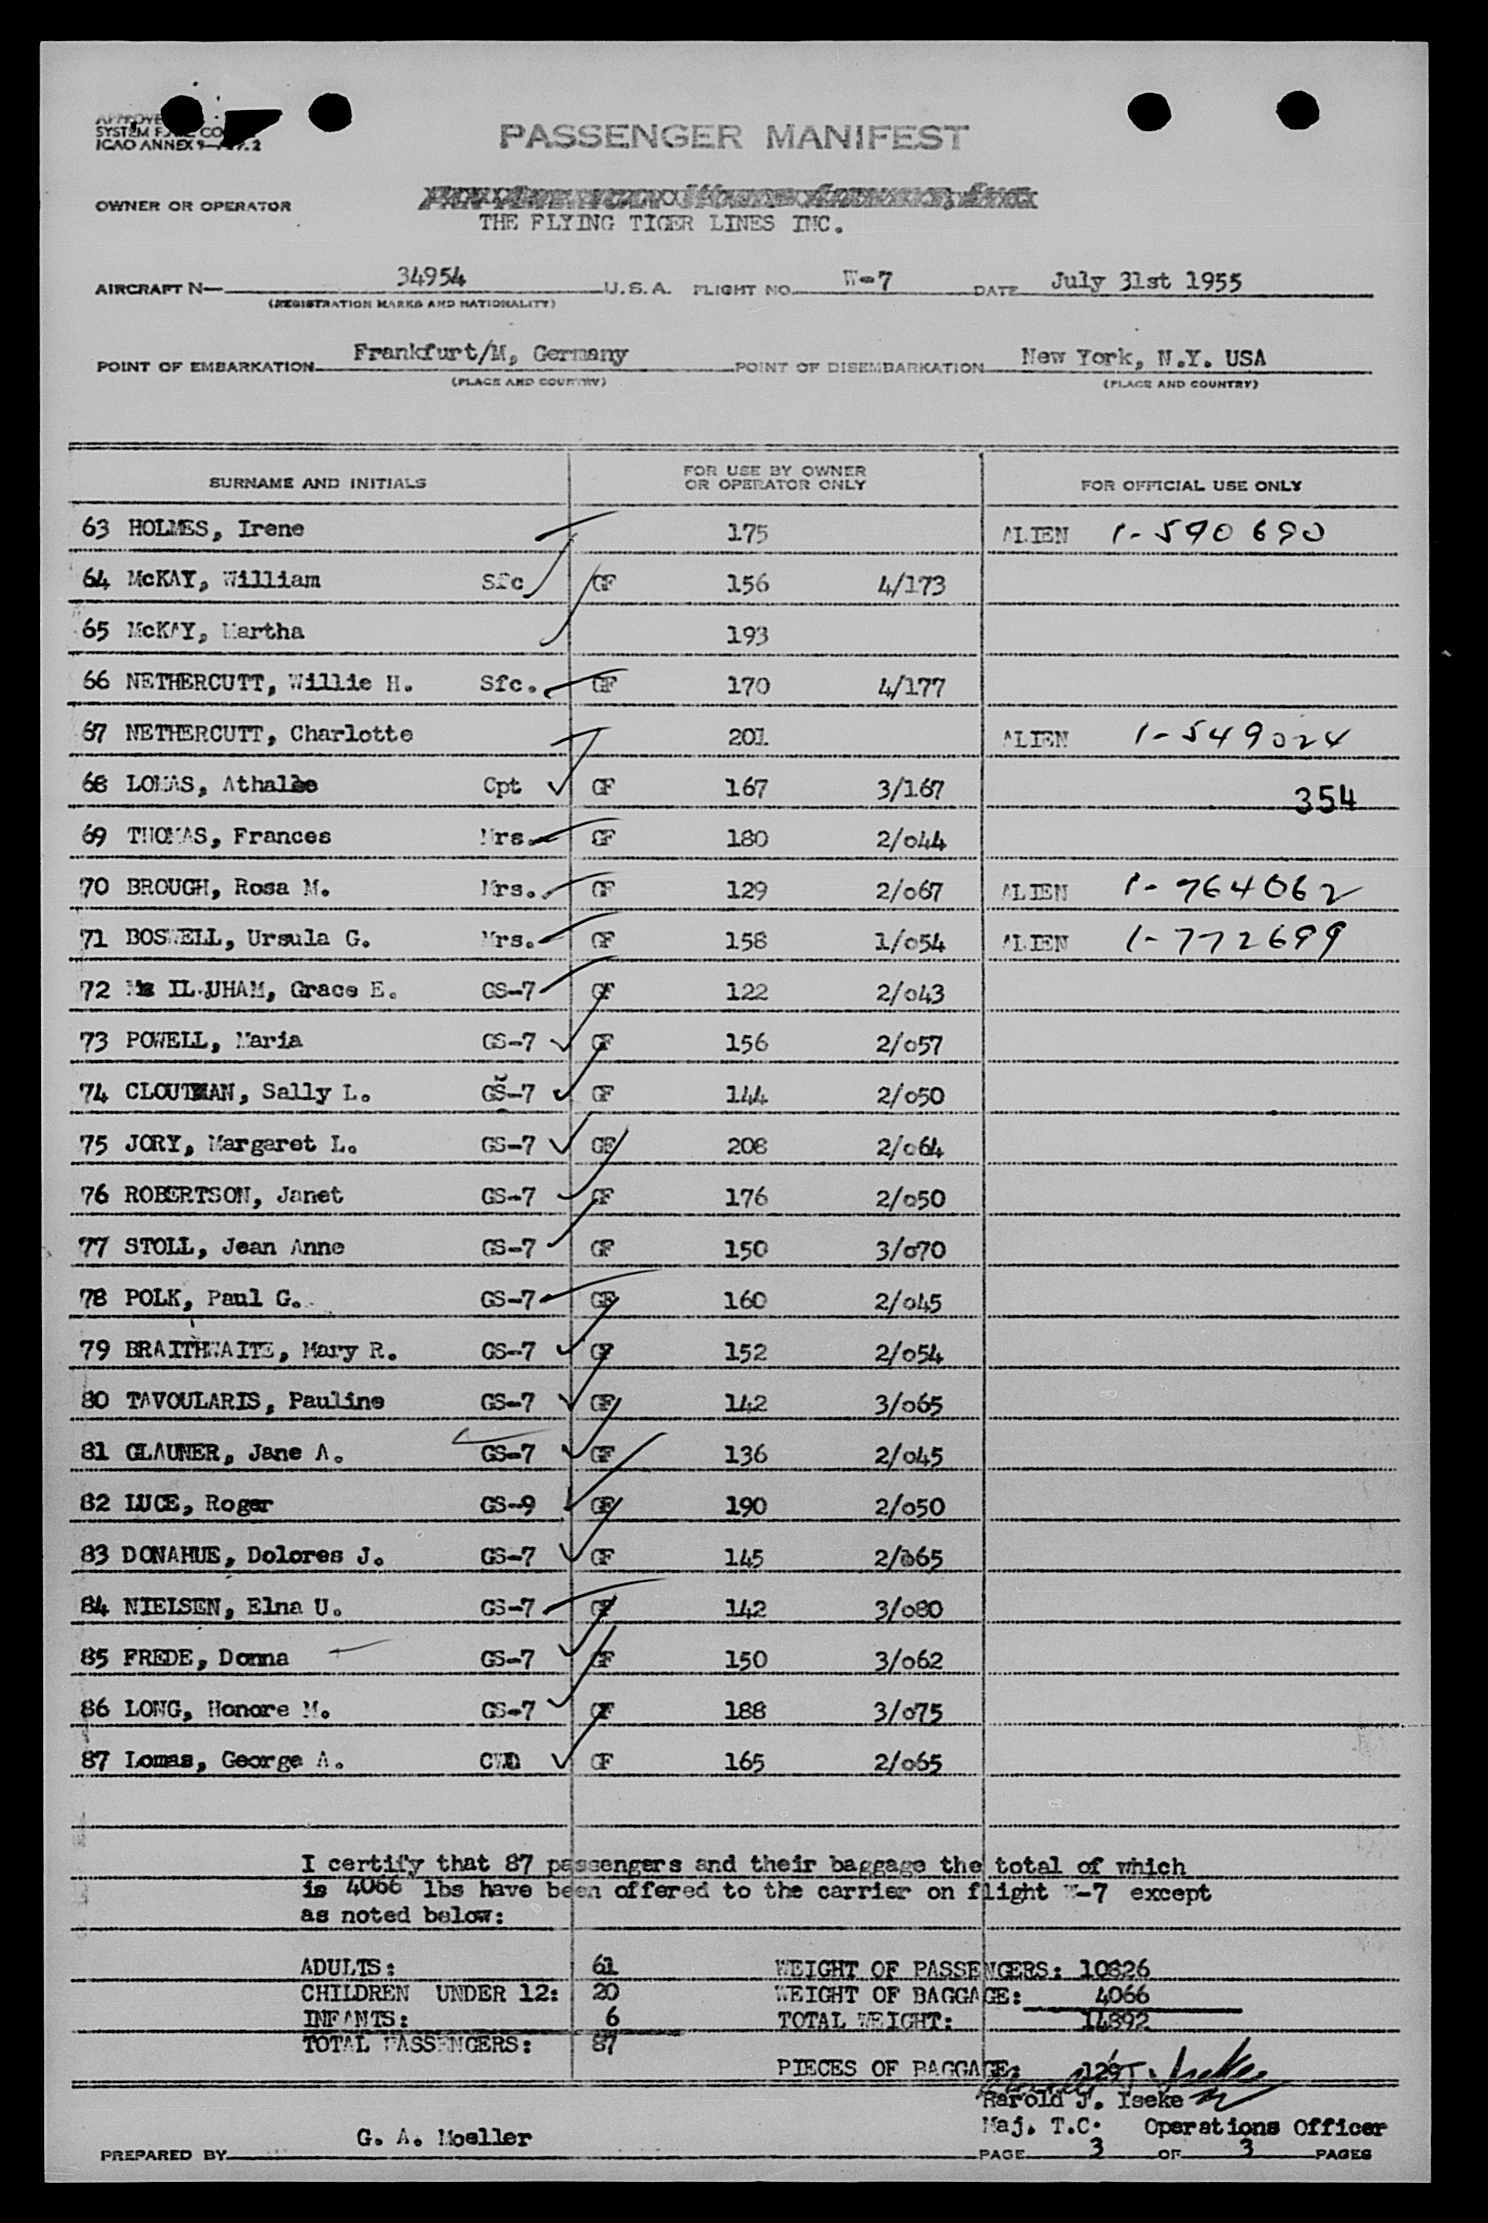 SYSTEM
ICAO ANNEX 9
PASSENGER MANIFEST
OWNER OR OPERATOR
THE FLYING TIGER LINES INC.
AIRCRAFT N— 34954 U.S.A. FLIGHT NO. W-7 DATE July 31st 1955
(REGISTRATION MARKS AND NATIONALITY)
POINT OF EMBARKATION Frankfurt/M, Germany POINT OF DISEMBARKATION New York, N.Y. USA
(PLACE AND COUNTRY) (PLACE AND COUNTRY)
SURNAME AND INITIALS FOR USE BY OWNER OR OPERATOR ONLY FOR OFFICIAL USE ONLY
63 HOLMES, Irene 175 ALIEN 1-590690
64 McKAY, William Sfc GF 156 4/173
65 McKAY, Martha 193
66 NETHERCUTT, Willie H. Sfc. GF 170 4/177
67 NETHERCUTT, Charlotte 201 ALIEN 1-549024
68 LOMAS, Athalee Cpt GF 167 3/167 354
69 THOMAS, Frances Mrs. GF 180 2/044
70 BROUGH, Rosa M. Mrs. GF 129 2/067 ALIEN 1-764062
71 BOSWELL, Ursula G. Mrs. GF 158 1/054 ALIEN 1-772699
72 Grace E. GS-7 GF 122 2/043
73 POWELL, Maria GS-7 GF 156 2/057
74 CLOUTMAN, Sally L. GS-7 GF 144 2/050
75 JORY, Margaret L. GS-7 GF 208 2/064
76 ROBERTSON, Janet GS-7 GF 176 2/050
77 STOLL, Jean Anne GS-7 GF 150 3/070
78 POLK, Paul G. GS-7 GF 160 2/045
79 BRAITHWAITE, Mary R. GS-7 GF 152 2/054
80 TAVOULARIS, Pauline GS-7 GF 142 3/065
81 GLAUNER, Jane A. GS-7 GF 136 2/045
82 LUCE, Roger GS-9 GF 190 2/050
83 DONAHUE, Dolores J. GS-7 GF 145 2/065
84 NIELSEN, Elna U. GS-7 GF 142 3/080
85 FREDE, Donna GS-7 GF 150 3/062
86 LONG, Honore M. GS-7 GF 188 3/075
87 Lomas, George A. GF 165 2/065
I certify that 87 passengers and their baggage the total of which
is 4066 lbs have been offered to the carrier on flight W-7 except
as noted below:
ADULTS: 61 WEIGHT OF PASSENGERS: 10826
CHILDREN UNDER 12: 20 WEIGHT OF BAGGAGE: 4066
INFANTS: 6 TOTAL WEIGHT: 14892
TOTAL PASSENGERS: 87
PIECES OF BAGGAGE: 129
Harold J. Iseke
Maj. T.C. Operations Officer
PREPARED BY G. A. Moeller PAGE 3 OF 3 PAGES